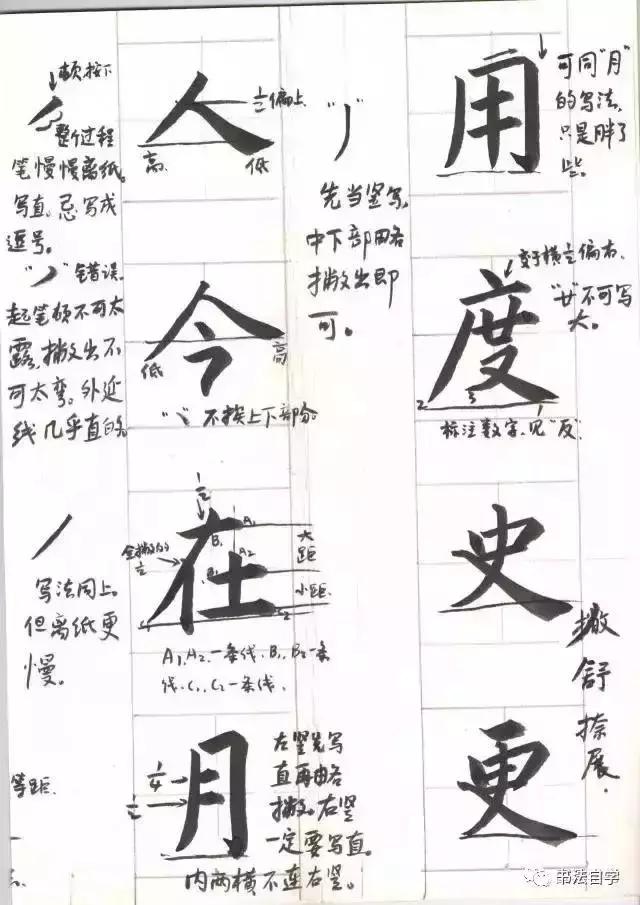 顿按下
整个过程
笔慢慢离纸。
写直。忌写成
逗号。
"丿"错误。
起笔顿不可太
露,撇出不
可太弯。外延
线几乎直的。
写法同上。
但离纸更
慢。
等距.
人
1/2偏上
高.
低
今
低
高
"丶"不挨上下部份。
在
1/2
全撇的
1/2
A1
A2
B1
大距
小距.
A1,A2.一条线.B1、B2一条
线.C1、C2一条线.
月
1/4
1/2
左竖先写
直再略
撇。右竖
一定要写直。
内两横不连右竖。
"丿"
先当竖写,
中下部略
撇出即
可。
用
可同"月"
的写法,
只是胖了
些。
度
点于横1/2偏右.
"廿"不可写
大。
2
3
1
标注数字.见"反".
史
更
撇舒捺展.
书法自学